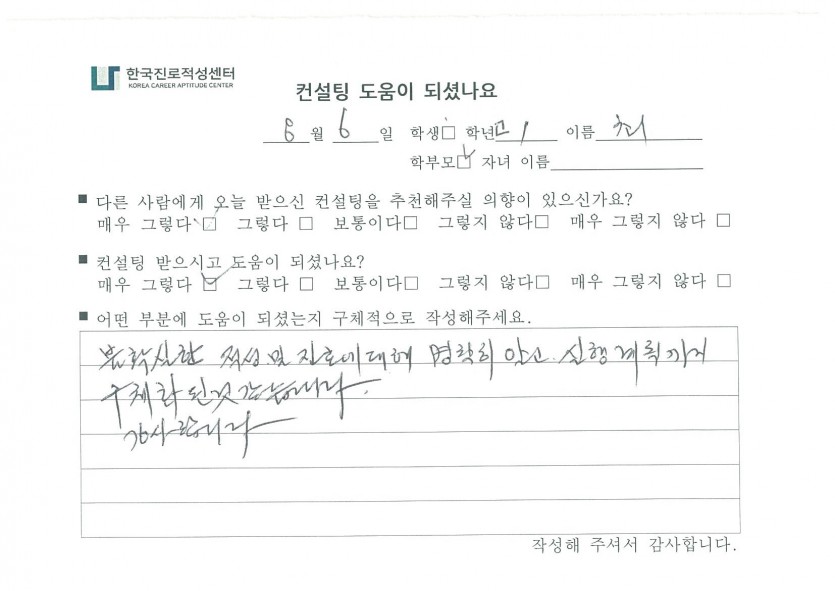 한국진로적성센터
KOREA CAREER APTITUDE CENTER
컨설팅 도움이 되셨나요
6월 6일 학생□ 학년 고1 이름 최
학부모☑ 자녀 이름
■ 다른 사람에게 오늘 받으신 컨설팅을 추천해주실 의향이 있으신가요?
매우 그렇다☑ 그렇다 □ 보통이다□ 그렇지 않다□ 매우 그렇지 않다 □
■ 컨설팅 받으시고 도움이 되셨나요?
매우 그렇다 ☑ 그렇다 □ 보통이다□ 그렇지 않다□ 매우 그렇지 않다 □
■ 어떤 부분에 도움이 되셨는지 구체적으로 작성해주세요.
적성 및 진로에 대해 명확히 알고. 실행계획까지
구체화 된것 같습니다.
감사합니다
작성해 주셔서 감사합니다.